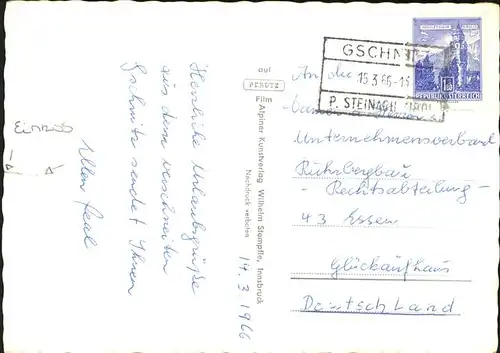 Herzliche Urlaubsgrüße
aus dem verschneiten
Gschnitz sendet Ihnen
Ellen
14.3.1966
auf
PERUTZ
Film
Alpiner Kunstverlag Wilhelm Stempfle, Innsbruck
Nachdruck verboten
GSCHNITZ
15.3.66-15
P. STEINACH, TIROL
REPUBLIK ÖSTERREICH
An die
Unternehmensverband
Ruhrbergbau
- Rechtsabteilung -
43 Essen
Glückaufhaus
Deutschland